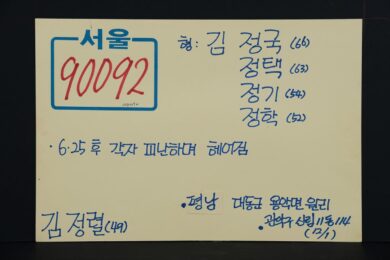 서울
90092
형: 김 정국 (66)
정택 (63)
정기 (54)
정학 (52)
· 6.25 후 각자 피난하며 헤어짐
· 평남 대동군 용악면 원리
· 관악구 신림11동 114
(13/1)
김정렬 (49)